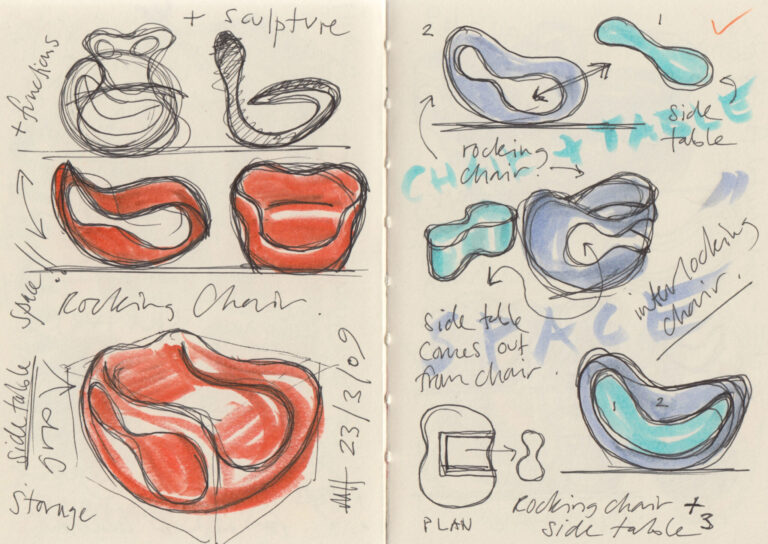 + sculpture
+ functions
space!!
Rocking Chair.
side table
Storage
23/3/09
2
1
side
table
rocking
chair.
CHAIR + TABLE
SPACE
interlocking
chair.
side table
comes out
from chair.
1
2
PLAN
Rocking chair +
side table
3